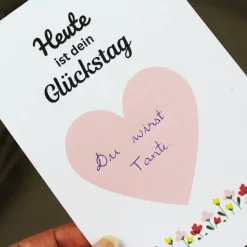 Heute
ist dein
Glückstag
Du wirst
Tante.